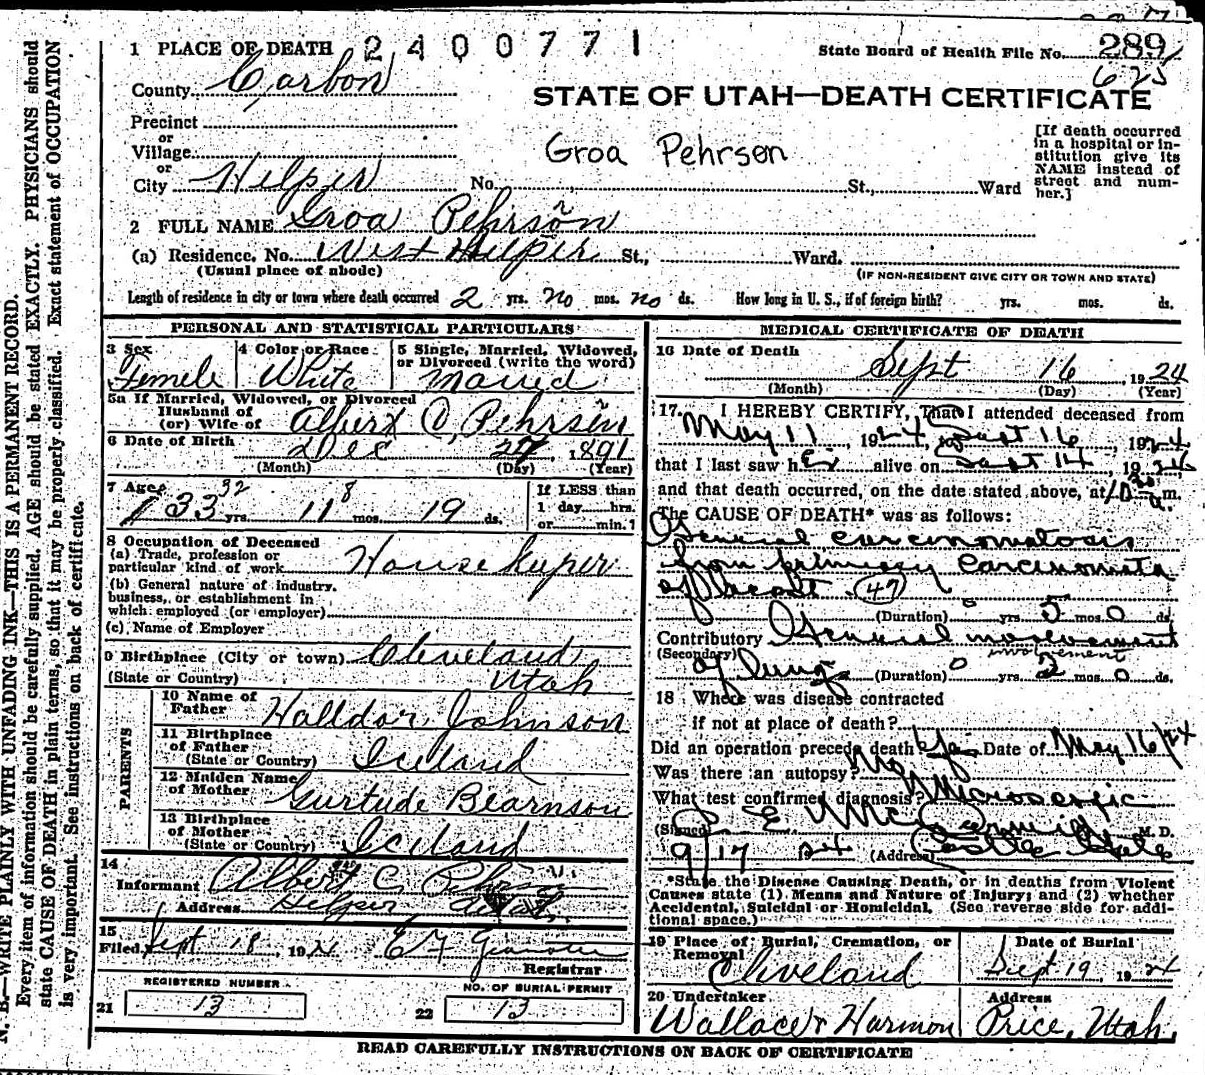 1 PLACE OF DEATH 2400771
State Board of Health File No. 289
625
County Carbon
STATE OF UTAH—DEATH CERTIFICATE
Precinct
or
Village
or
City Helper No. St., Ward
Groa Pehrson
[If death occurred
in a hospital or in-
stitution give its
NAME instead of
street and num-
ber.]
2 FULL NAME Groa Pehrson
(a) Residence, No. West Helper St., Ward.
(Usual place of abode) (IF NON-RESIDENT GIVE CITY OR TOWN AND STATE)
Length of residence in city or town where death occurred 2 yrs. no mos. no ds. How long in U. S., if of foreign birth? yrs. mos. ds.
PERSONAL AND STATISTICAL PARTICULARS
3 Sex 4 Color or Race 5 Single, Married, Widowed,
or Divorced (write the word)
Femele White Married
5a If Married, Widowed, or Divorced
Husband of
(or) Wife of Albert C. Pehrson
6 Date of Birth Dec 27, 1891
(Month) (Day) (Year)
7 Age 33 32 yrs. 11 8 mos. 19 ds.
If LESS than
1 day hrs.
or min.?
8 Occupation of Deceased
(a) Trade, profession or
particular kind of work House keeper
(b) General nature of industry,
business, or establishment in
which employed (or employer)
(c) Name of Employer
9 Birthplace (City or town) Cleveland
(State or Country) Utah
PARENTS
10 Name of
Father Halldor Johnson
11 Birthplace
of Father
(State or Country) Iceland
12 Maiden Name
of Mother Gurtude Bearnson
13 Birthplace
of Mother
(State or Country) Iceland
14
Informant Albert C. Pehrson
Address Helper Utah
15
Filed Sept 18, 1924 E F
Registrar
REGISTERED NUMBER NO. OF BURIAL PERMIT
21 13 22 13
MEDICAL CERTIFICATE OF DEATH
16 Date of Death
Sept 16, 1924
(Month) (Day) (Year)
17. I HEREBY CERTIFY, That I attended deceased from
May 11, 1924, to Sept 16, 1924
that I last saw her alive on Sept 14, 1924
and that death occurred, on the date stated above, at 10 30 a.m.
The CAUSE OF DEATH* was as follows:
General carcinomatosis
from primary carcinomata
of breast. (47)
(Duration) 0 yrs. 5 mos. 0 ds.
Contributory General movement
(Secondary) involvement
of lungs (Duration) 0 yrs. 2 mos. 0 ds.
18 Where was disease contracted
if not at place of death?
Did an operation precede death? Yes Date of May 16/24
Was there an autopsy? No
What test confirmed diagnosis? Microscopic
(Signed) E. M. D.
9/17 24 (Address) Castle Gate
*State the Disease Causing Death, or in deaths from Violent
Causes state (1) Means and Nature of Injury; and (2) whether
Accidental, Suicidal or Homicidal. (See reverse side for addi-
tional space.)
19 Place of Burial, Cremation, or
Removal
Cleveland
Date of Burial
Sept 19, 1924
20 Undertaker Address
Wallace & Harmon Price, Utah.
READ CAREFULLY INSTRUCTIONS ON BACK OF CERTIFICATE
N. B.—WRITE PLAINLY WITH UNFADING INK—THIS IS A PERMANENT RECORD.
Every item of information should be carefully supplied. AGE should be stated EXACTLY. PHYSICIANS should
state CAUSE OF DEATH in plain terms, so that it may be properly classified. Exact statement of OCCUPATION
is very important. See instructions on back of certificate.